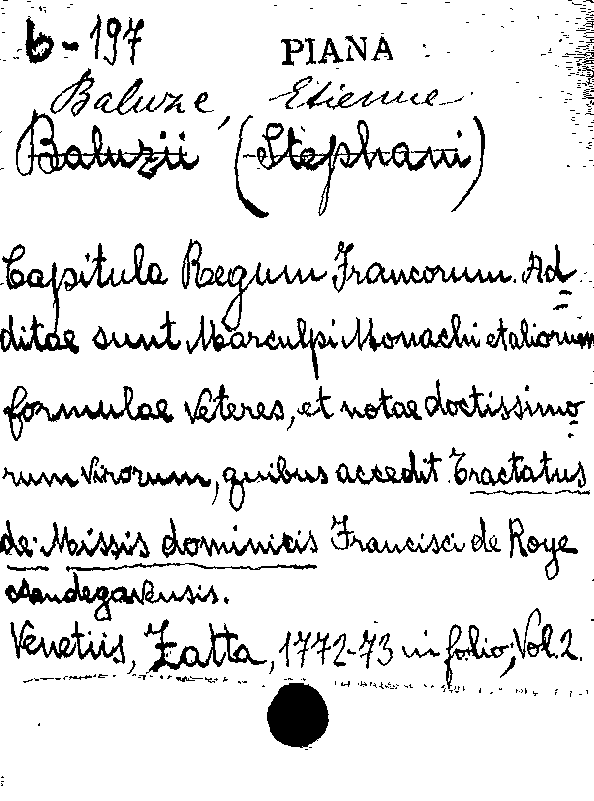 b-197 PIANA
Baluze, Etienne
Baluzii (Stephani)
Capitula Regum Francorum. Ad
ditae sunt Marculpi Monachi et aliorum
formulae veteres, et notae doctissimo
rum virorum, quibus accedit Tractatus
de Missis dominicis Francisci de Roye
Andegavensis.
Venetiis, Zatta, 1772-73 in folio, Vol. 2.